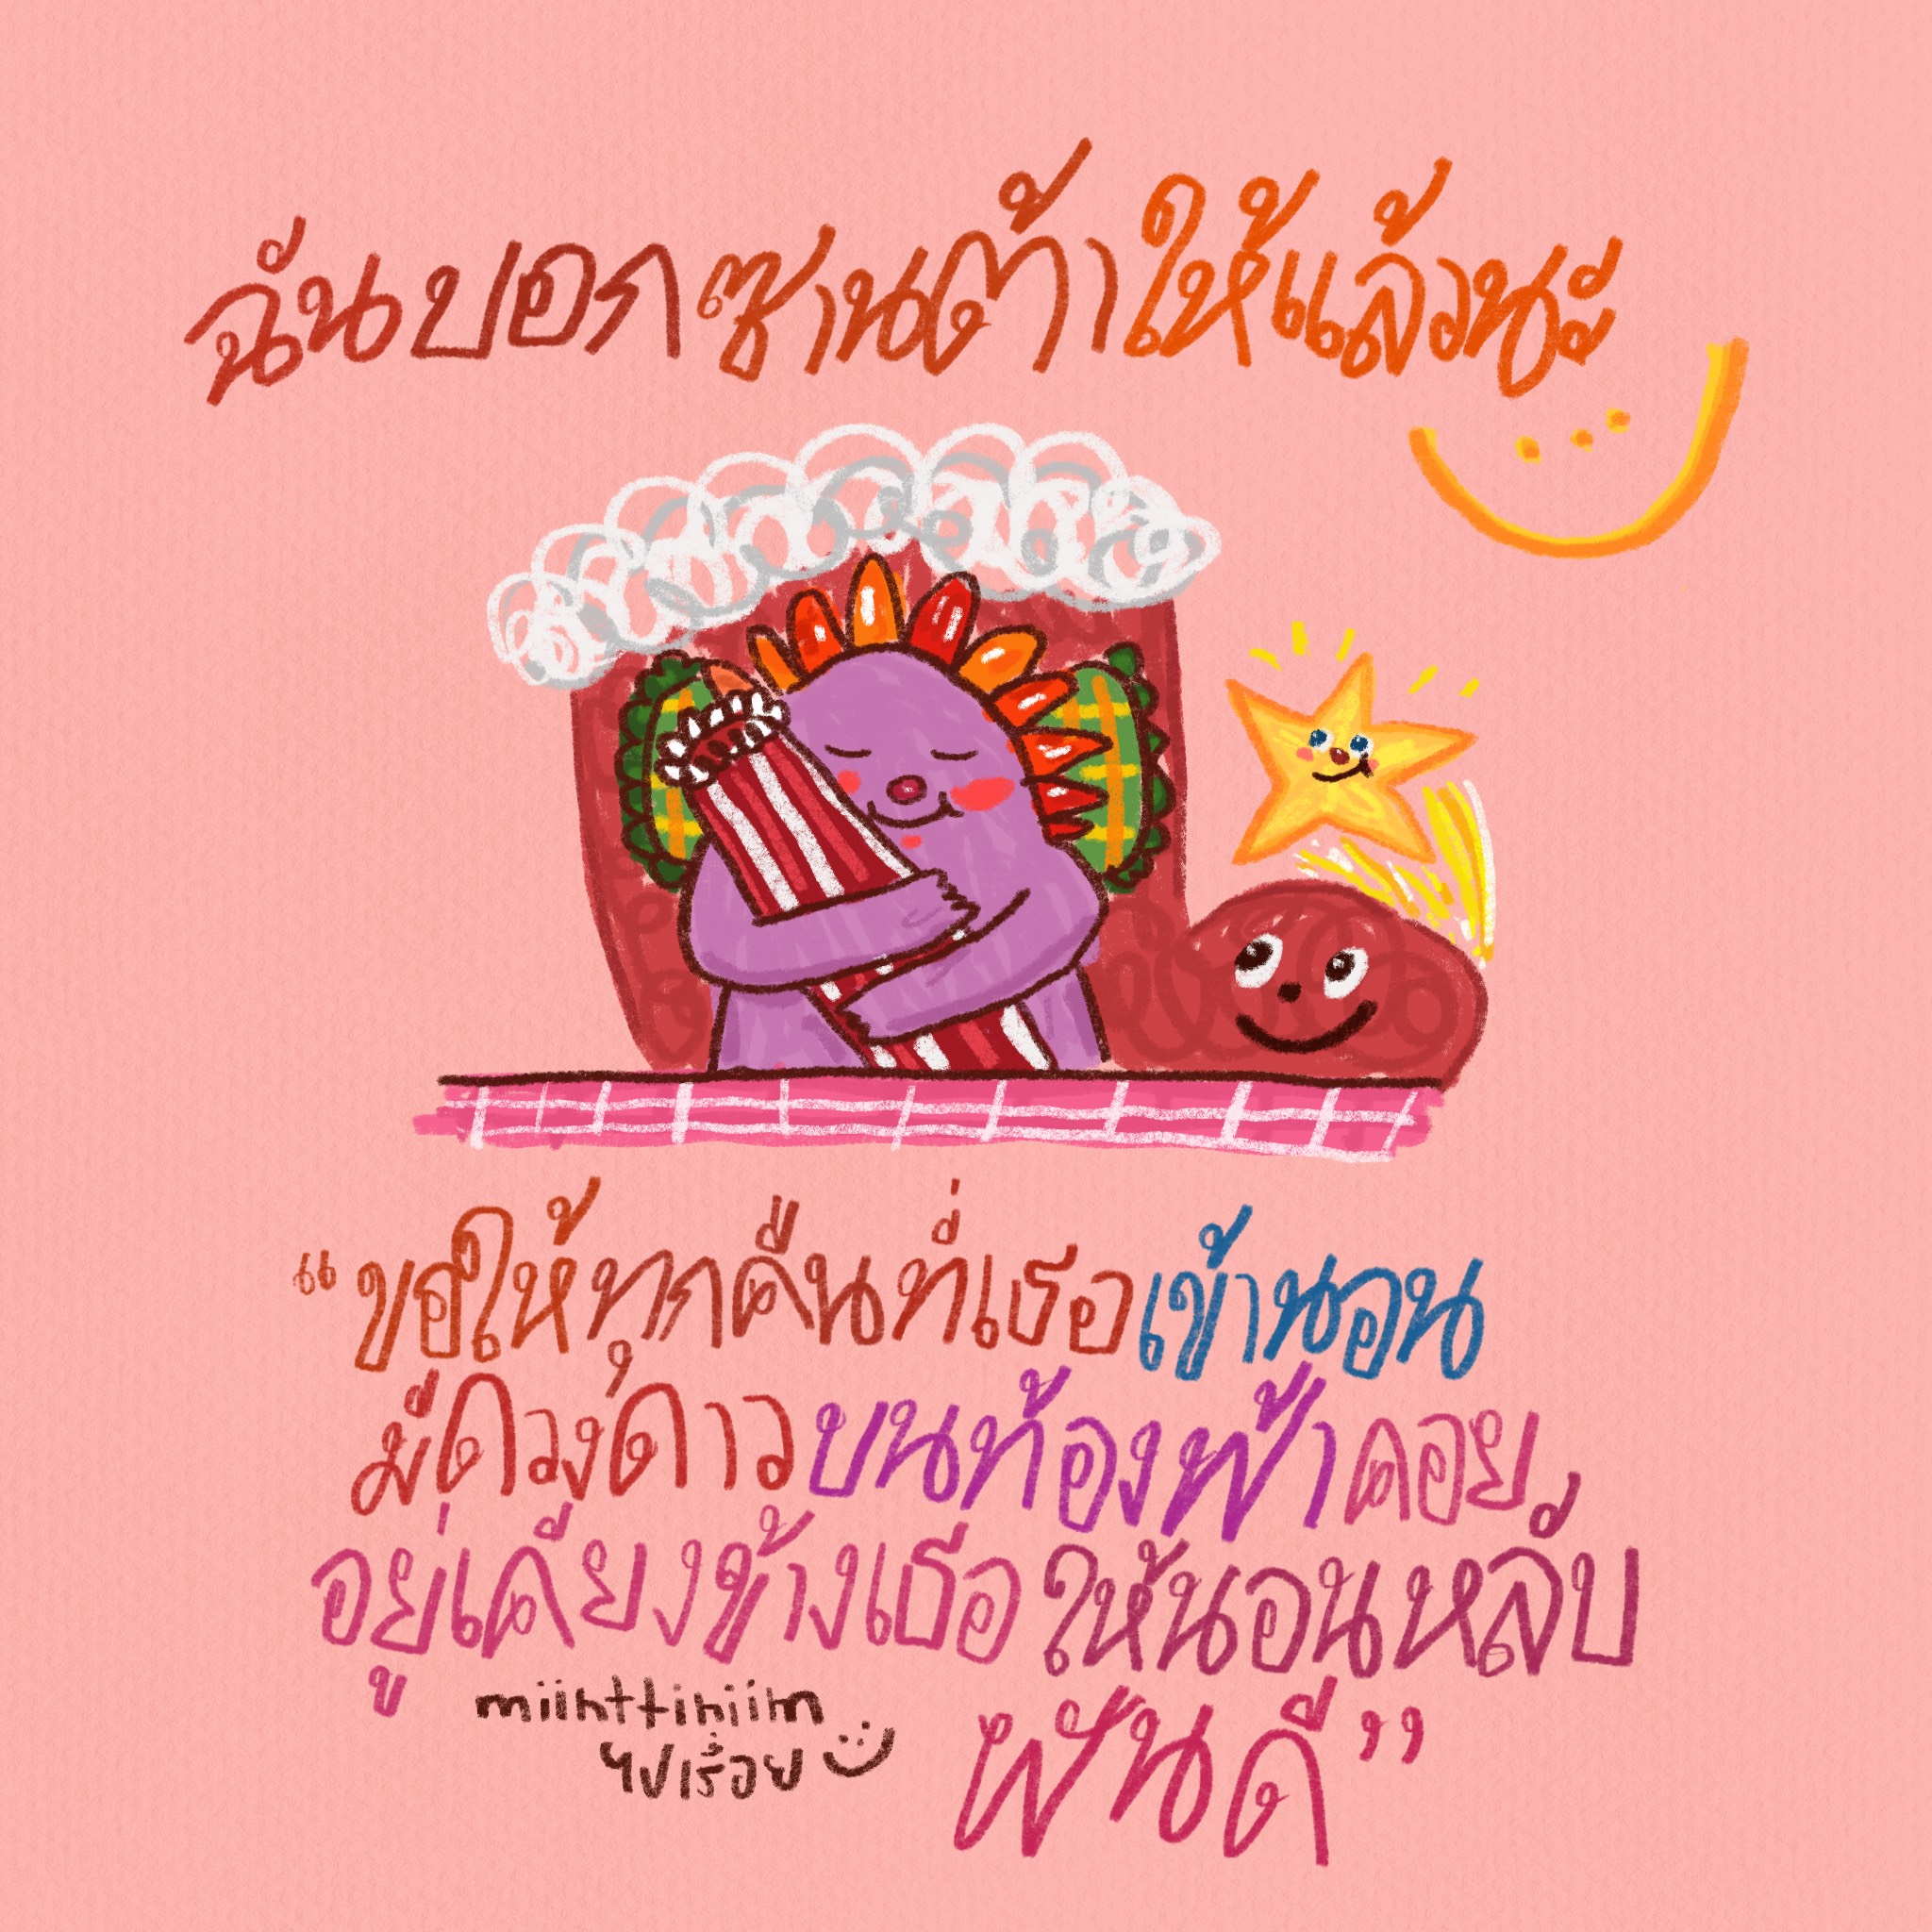 ฉันบอกซานต้าให้แล้วนะ
“ขอให้ทุกคืนที่เธอเข้านอน
มีดวงดาวบนท้องฟ้าคอย
อยู่เคียงข้างเธอให้นอนหลับ
ฝันดี”
miinttiniiin
ไปเรื่อย